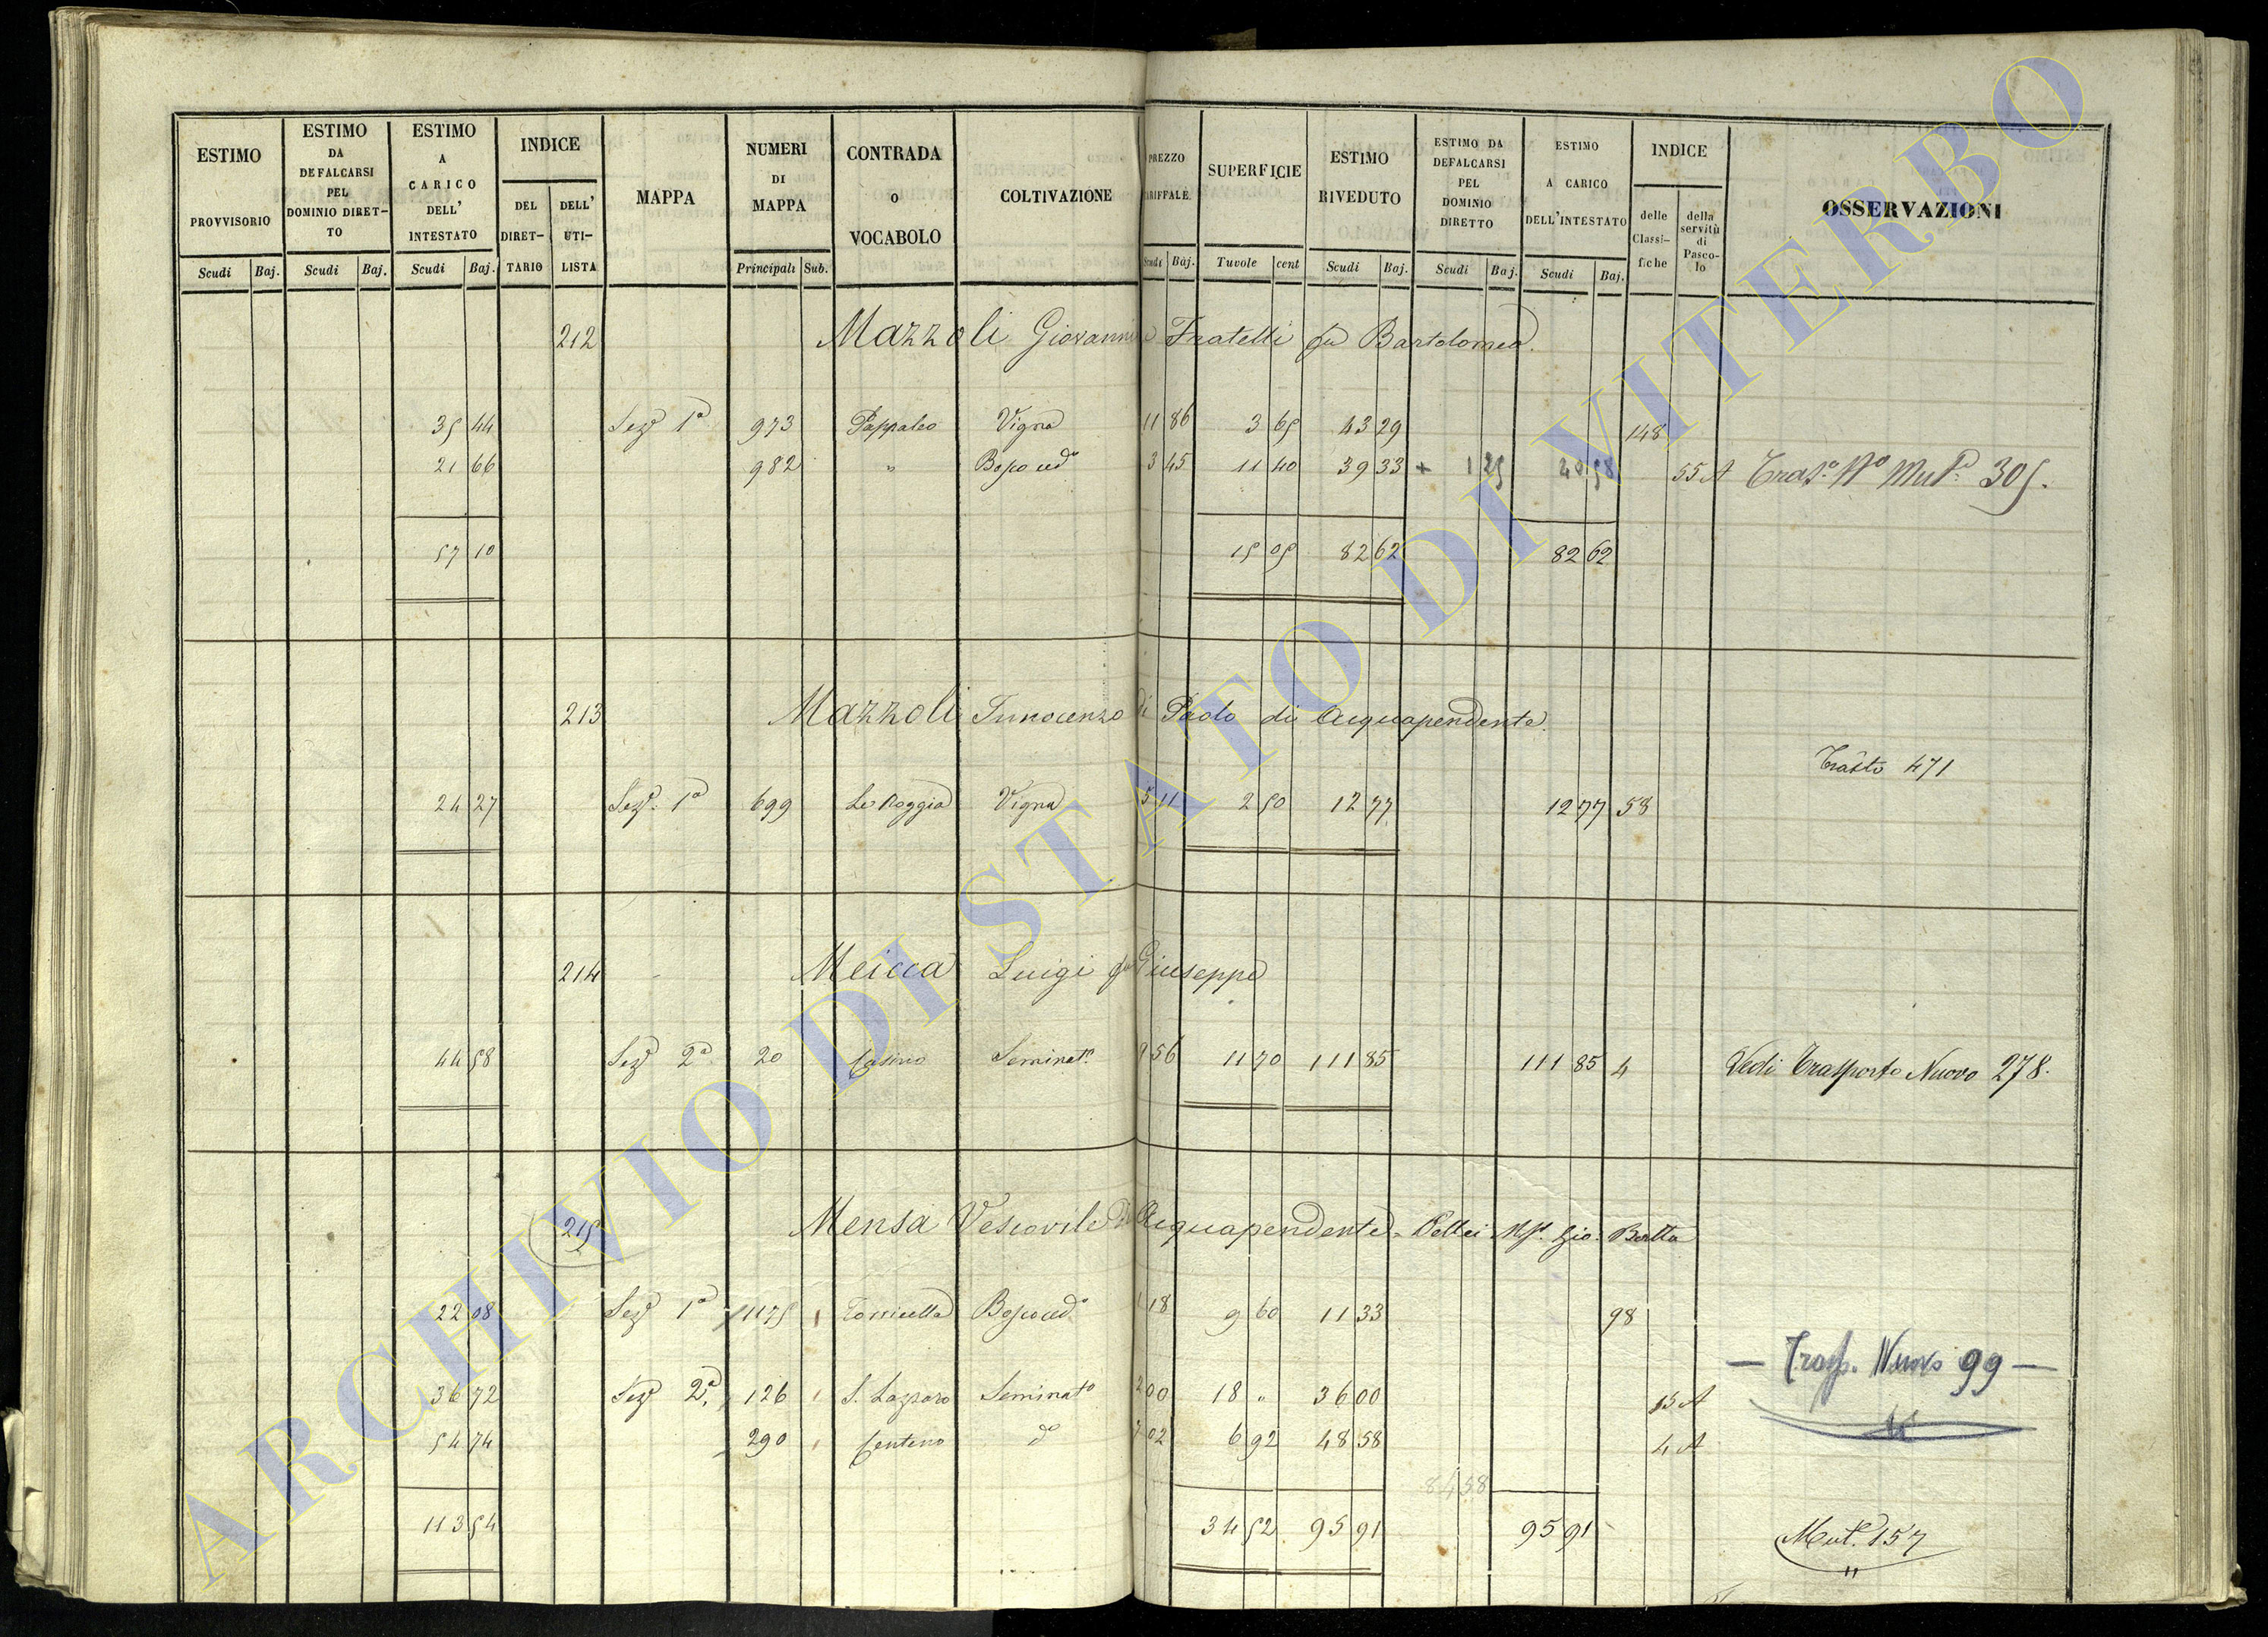 ESTIMO PROVVISORIO Scudi Baj.
ESTIMO DA DEFALCARSI PEL DOMINIO DIRET-TO Scudi Baj.
ESTIMO A CARICO DELL' INTESTATO Scudi Baj.
INDICE DEL DIRET-TARIO DELL' UTI-LISTA
MAPPA
NUMERI DI MAPPA Principali Sub.
CONTRADA o VOCABOLO
COLTIVAZIONE
PREZZO TARIFFALE. Scudi Baj.
SUPERFICIE Tavole cent
ESTIMO RIVEDUTO Scudi Baj.
ESTIMO DA DEFALCARSI PEL DOMINIO DIRETTO Scudi Baj.
ESTIMO A CARICO DELL'INTESTATO Scudi Baj.
INDICE delle Classi-fiche della servitù di Pasco-lo
OSSERVAZIONI
212 Mazzoli Giovanni e Fratelli fu Bartolomeo.
35 44 Sez.e 1a 973 Pappaleo Vigna 11 86 3 65 43 29 148
21 66 982 " Bosco ced.o 3 45 11 40 39 33 + 1 25 40 58 55 A Tras.o No Mut.e 305.
57 10 15 05 82 62 82 62
213 Mazzoli Innocenzo di Paolo di Acquapendente.
Trasto 471
24 27 Sez.e 1a 699 Le Roggia Vigna 5 11 2 50 12 77 12 77 58
214 Meicca Luigi fu Giuseppe
44 58 Sez.e 2a 20 Casino Seminat.o 9 56 11 70 111 85 111 85 4 Vedi Trasporto Nuovo 278.
215 Mensa Vescovile di Acquapendente = Pellei Mr. Gio. Batta
22 08 Sez.e 1a 1175 Torricella Bosco ced.o 1 18 9 60 11 33 98
— Trasp. Nuovo 99 —
36 72 Sez.e 2a 126 S. Lazzaro Seminato 2 00 18 " 36 00 15 A
54 74 290 Centeno do 7 02 6 92 48 58 4 A
84 58
113 54 34 52 95 91 95 91 Mut.e 157
ARCHIVIO DI STATO DI VITERBO